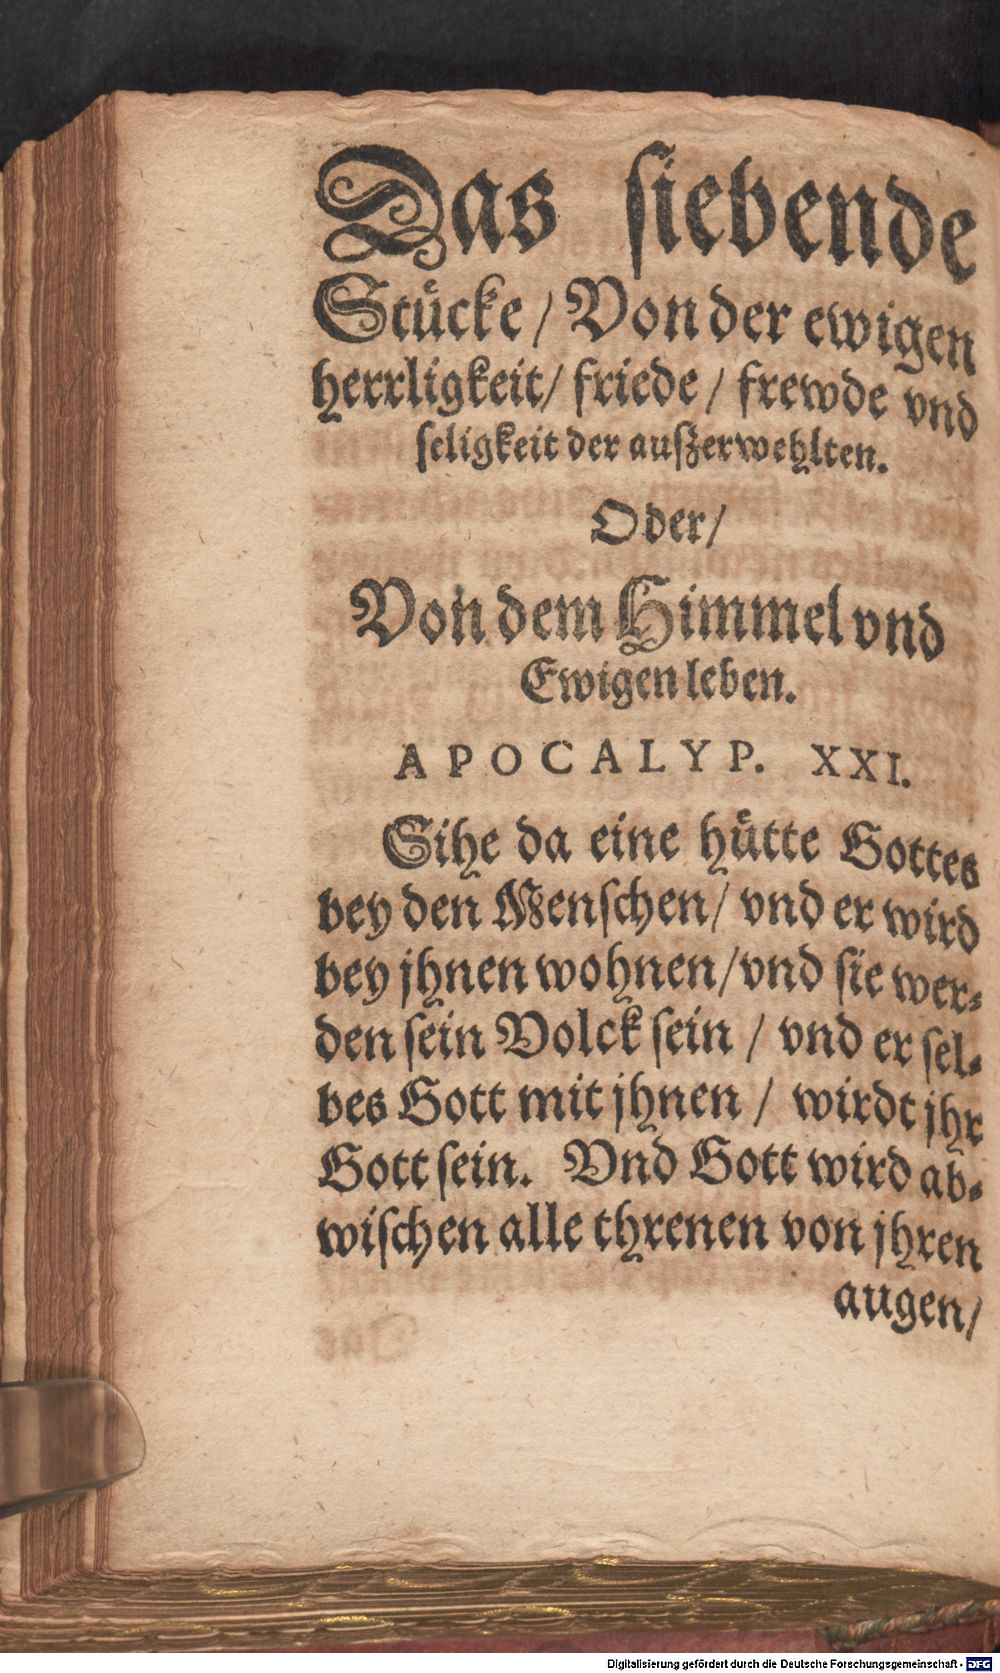 Das siebende
Stücke / Von der ewigen
herrligkeit / friede / frewde vnd
seligkeit der außerwehlten.
Oder /
Von dem Himmel vnd
Ewigen leben.
APOCALYP. XXI.
Sihe da eine hütte Gottes
bey den Menschen / vnd er wird
bey jhnen wohnen / vnd sie wer-
den sein Volck sein / vnd er sel-
bes Gott mit jhnen / wirdt jhr
Gott sein. Vnd Gott wird ab-
wischen alle threnen von jhren
augen /
Digitalisierung gefördert durch die Deutsche Forschungsgemeinschaft - DFG